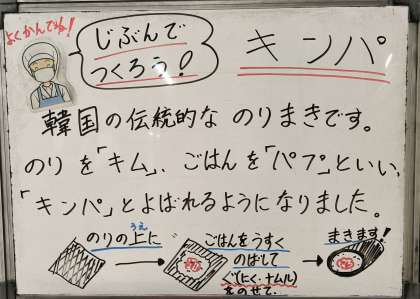 よくかんでね!
じぶんで
つくろう!
キンパ
韓国の伝統的な のりまきです。
のりを「キム」、ごはんを「パプ」といい、
「キンパ」とよばれるようになりました。
のりの上に
うえ
ごはんをうすく
のばして
ぐ(にく・ナムル)
をのせて…
まきます!